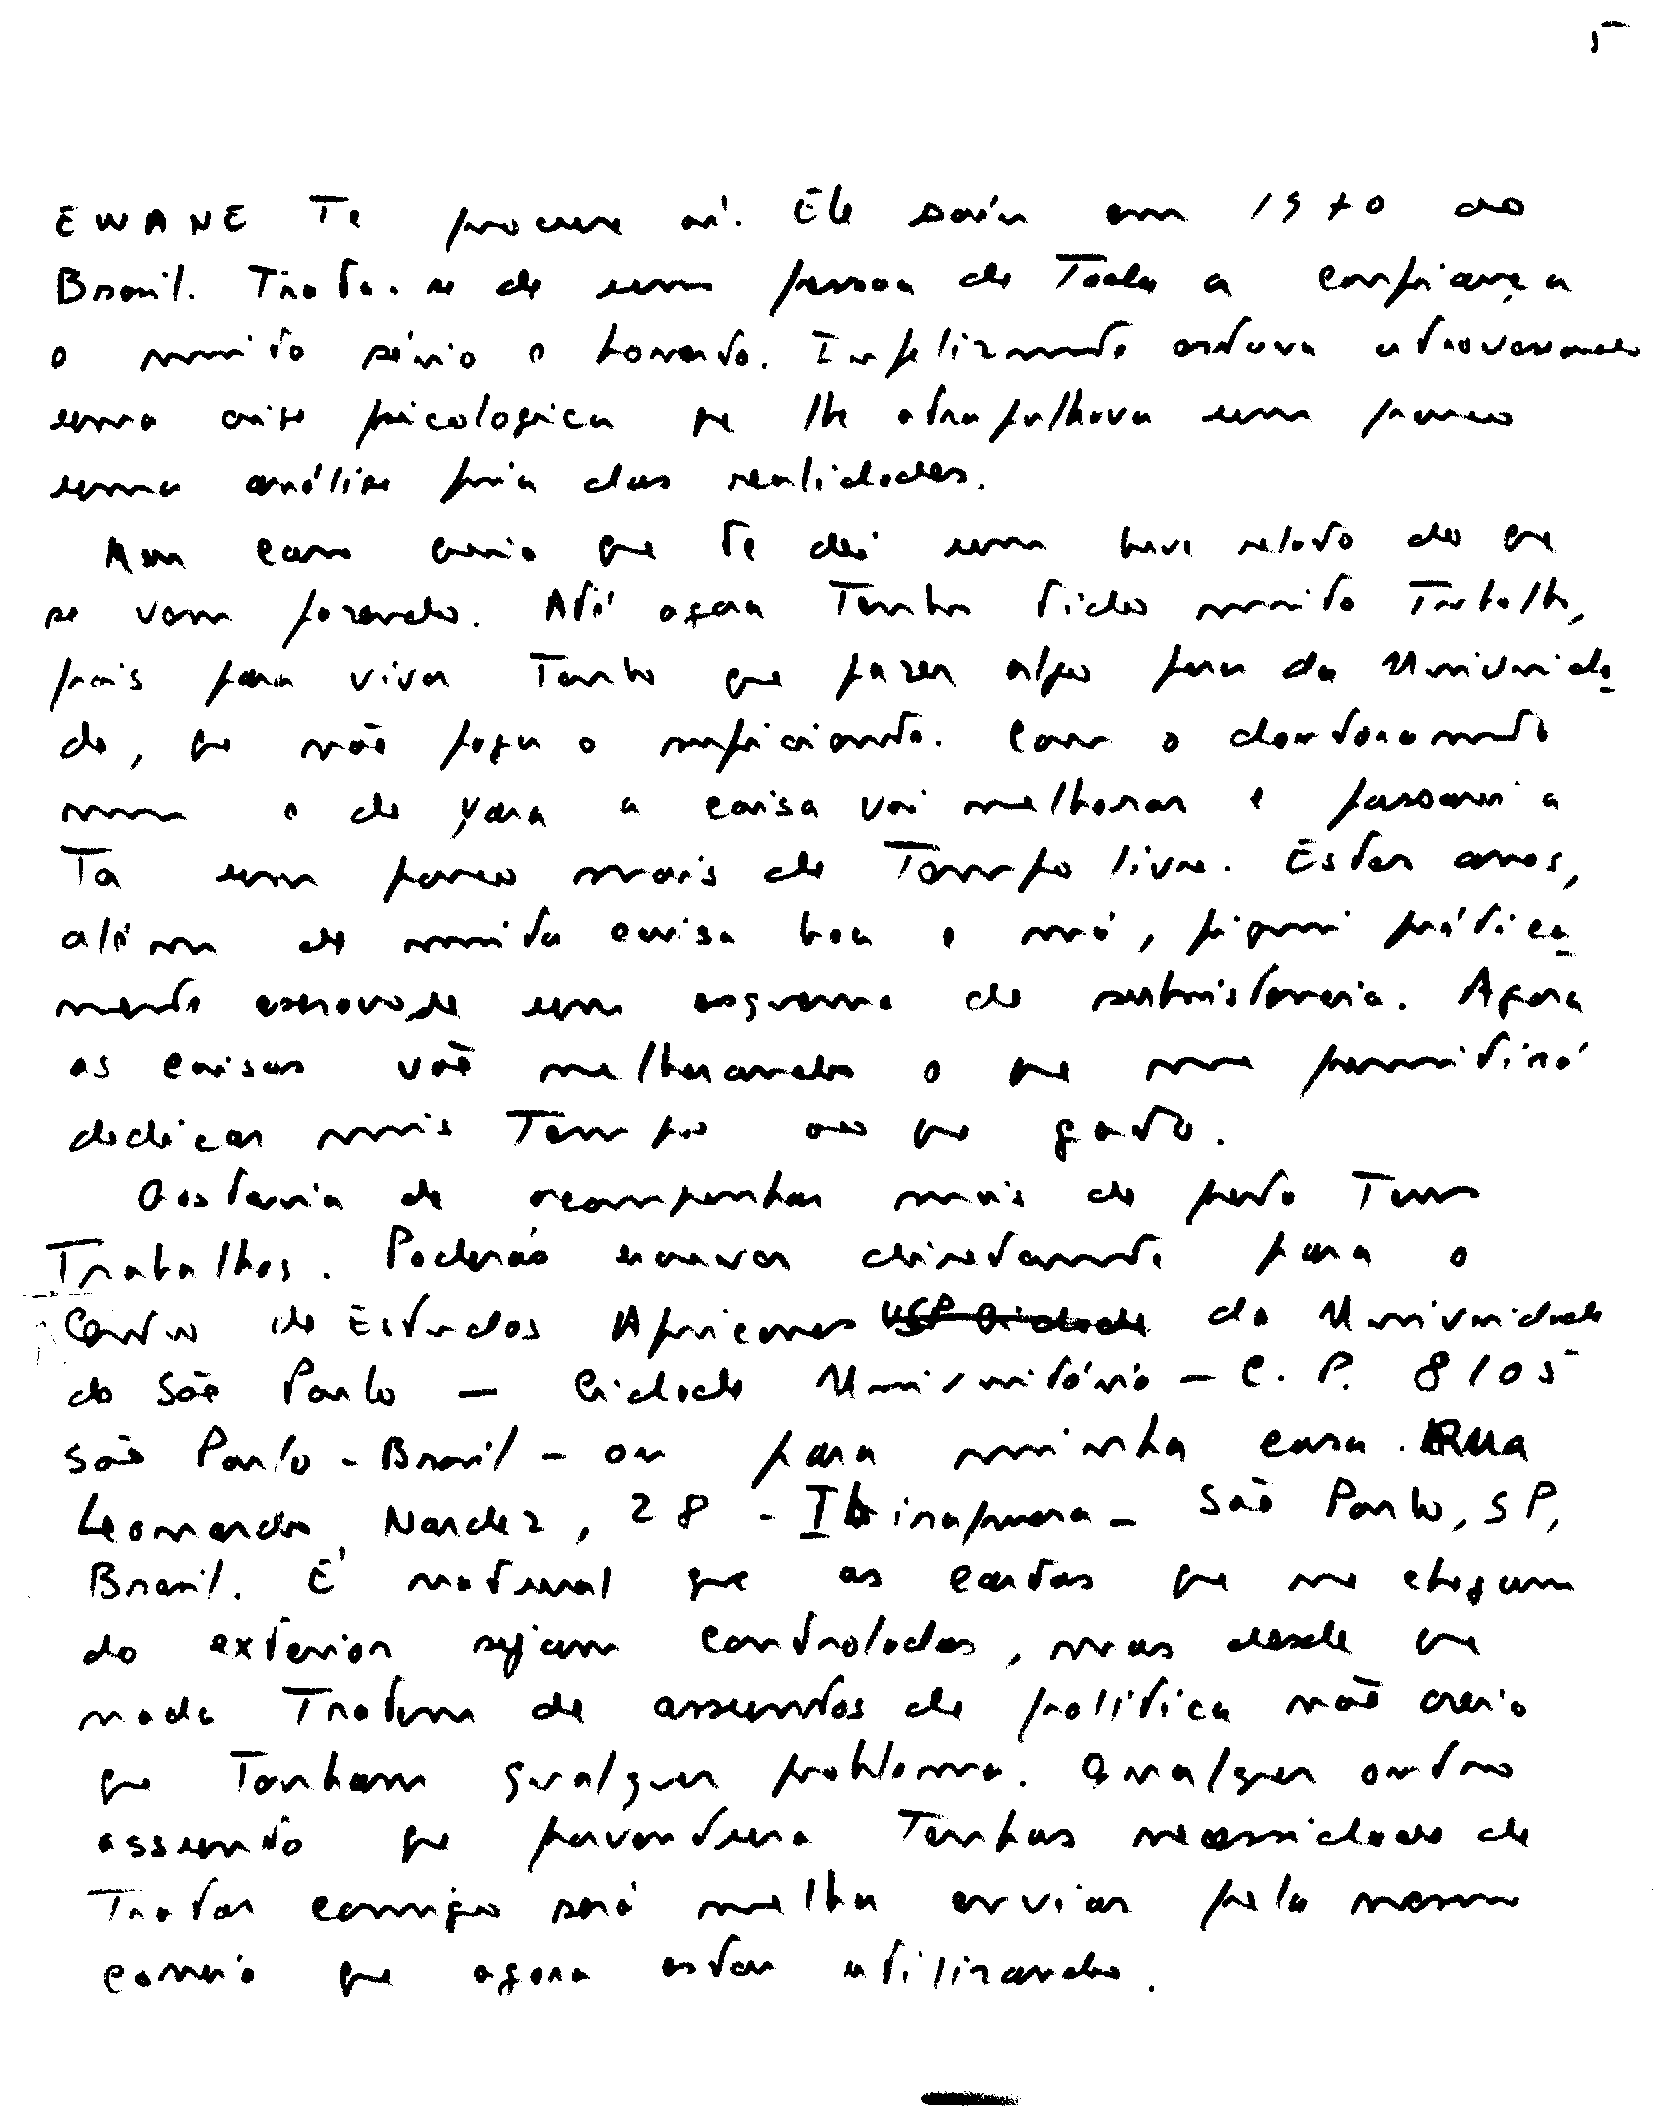 5
EWANE Te procure aí. Ele saiu em 1970 do
Brasil. Trata-se de uma pessoa de Toda a confiança
e muito sério e honesto. Infelizmente estava atravessando
uma crise psicologica que lhe atrapalhava um pouco
uma análise fria das realidades.
Bom caro creio que te dei um breve relato do que
se vem fazendo. Até agora Tenho tido muito Trabalho,
pois para viver Tenho que fazer algo fora da Universida
de, que não paga o suficiente. Com o doutoramento
meu e de Yara a coisa vai melhorar e passarei a
Ter um pouco mais de Tempo livre. Estes anos,
além de muita coisa boa e má, fiquei prática
mente escravo de um esquema de subsistencia. Agora
as coisas vão melhorando o que me permitirá
dedicar mais Tempo ao que gosto.
Gostaria de acompanhar mais de perto Teus
Trabalhos. Poderás escrever diretamente para o
Centro de Estudos Africanos USP Cidade da Universidade
de São Paulo - Cidade Universitária - C.P. 8105
São Paulo - Brasil - ou para minha casa. Rua
Leonardo Nardez, 28 - Ibirapuera - São Paulo, SP,
Brasil. É natural que as cartas que me chegam
do exterior sejam controladas, mas desde que
nada Tratem de assuntos de política não creio
que Tenham qualquer problema. Qualquer outro
assunto que porventura Tenhas necessidade de
Tratar comigo será melhor enviar pelo mesmo
correio que agora estou utilizando.